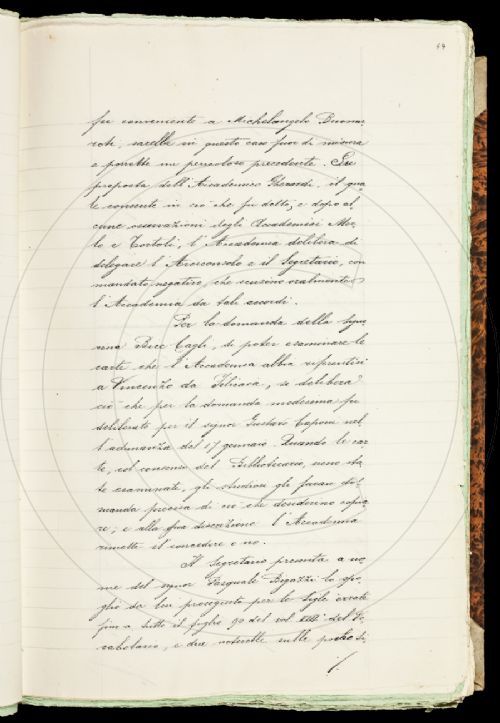 54
fu conveniente a Michelangelo Buonar
roti, sarebbe in questo caso fuor di misura
e porrebbe un pericoloso precedente. Su
proposta dell'Accademico Gherardi, il qua
le consente in ciò che fu detto, e dopo al
cune osservazioni degli Accademici Mer
lo e Tortoli, l'Accademia delibera di
delegare l'Arciconsolo e il Segretario, con
mandato negativo, che scusino oralmente
l'Accademia da tali accordi.
Per la domanda della Signo
rina Bice Cagli, di poter esaminare le
carte che l'Accademia abbia referentisi
a Vincenzo da Filicaia, si deliberà
ciò che per la domanda medesima fu
deliberato per il signor Gustavo Caponi nel
l'adunanza del 17 gennaio. Quando le car
te, col consenso del Bibliotecario, sieno sta
te esaminate, gli studiosi gli faran do
manda precisa di ciò che desiderino copia
re; e alla sua discrezione l'Accademia
rimette il concedere o no.
Il Segretario presenta a no
me del signor Pasquale Bigazzi lo spo
glio da lui proseguito per le Sigle errate
fino a tutto il foglio 90 del vol. del Vo
cabolario, e due noterelle sulle